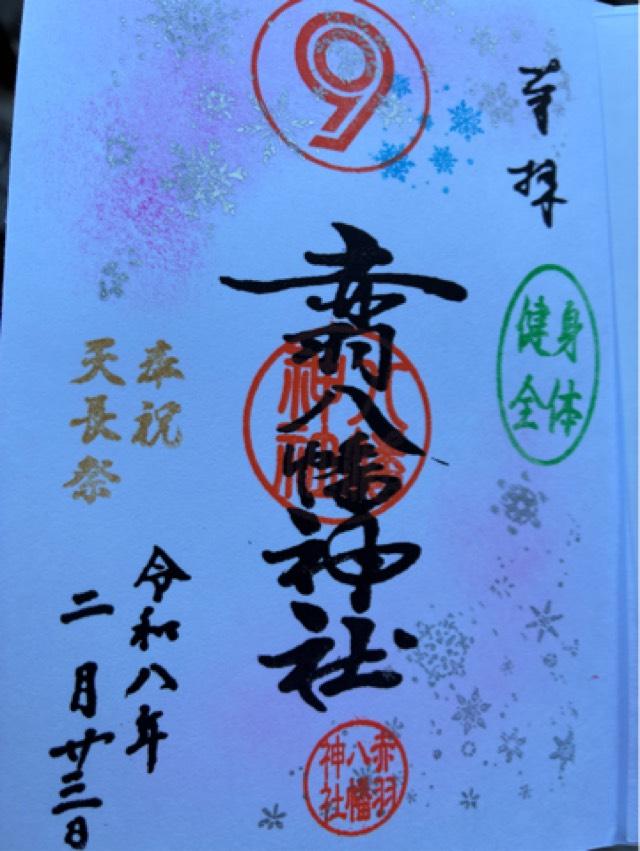 奉拝
身体
健全
9
赤羽八幡神社
八幡
神社
赤羽
八幡
神社
奉祝
天長祭
令和八年
二月廿三日